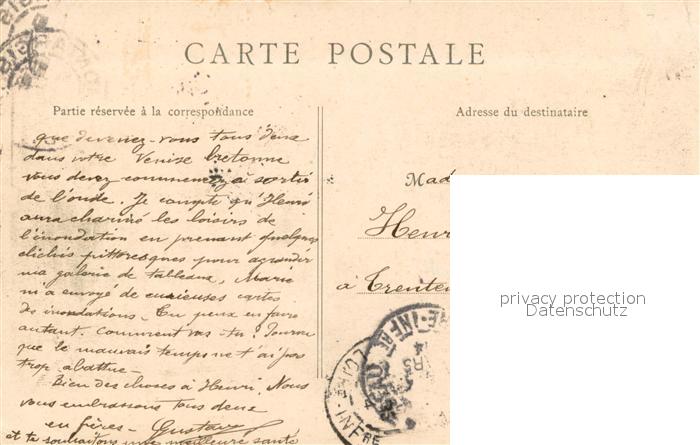 CARTE POSTALE
Partie réservée à la correspondance
Adresse du destinataire
que devenez-vous tous deux
dans votre Venise bretonne
vous devez commencer à sortir
de l'onde. Je compte qu'Henri
aura charmé les loisirs de
l'inondation en prenant quelques
clichés pittoresques pour agrandir
ma galerie de tableaux, Marie
m'a envoyé de curieuses cartes
des inondations. Tu peux en faire
autant. Comment vas-tu? Pourvu
que le mauvais temps ne t'ai pas
trop abattue -
Bien des choses à Henri. Nous
vous embrassons tous deux
en frères - Gustave
et te souhaitons une meilleure santé
Mad
Henr
à Trente
privacy protection
Datenschutz
RE-INFRE
LOIRE-INFRE